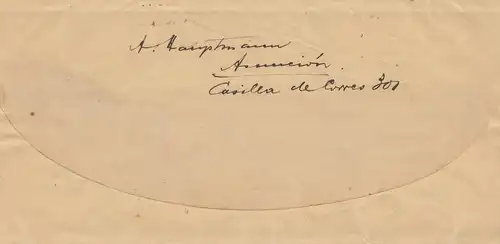 A. Hauptmann
Asunción.
Casilla de Correo 301